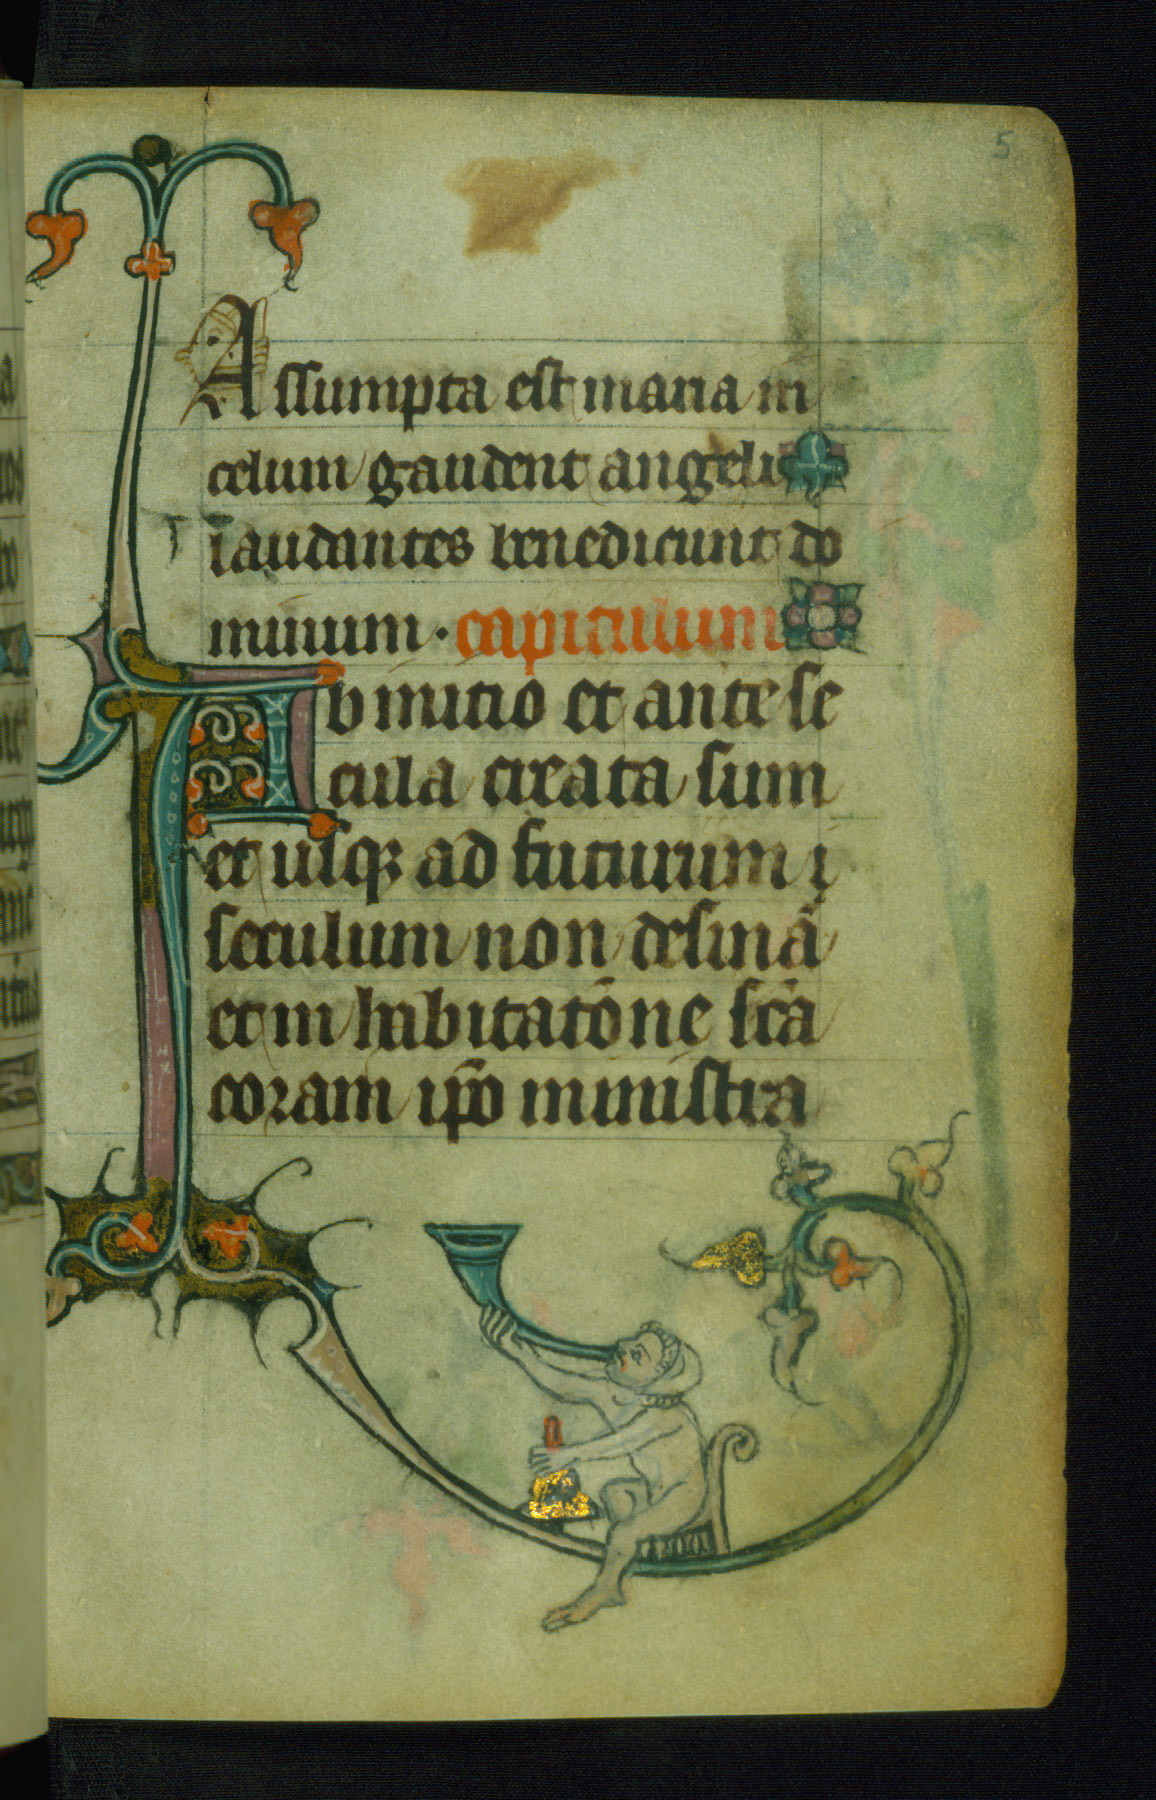 5
Assumpta est maria in
celum gaudent angeli
laudantes benedicunt do
minum · capitulum
Ab initio et ante se
cula creata sum
et usq; ad futurum i
seculum non desinā
et in habitatōne sc̄a
coram ip̄o ministra